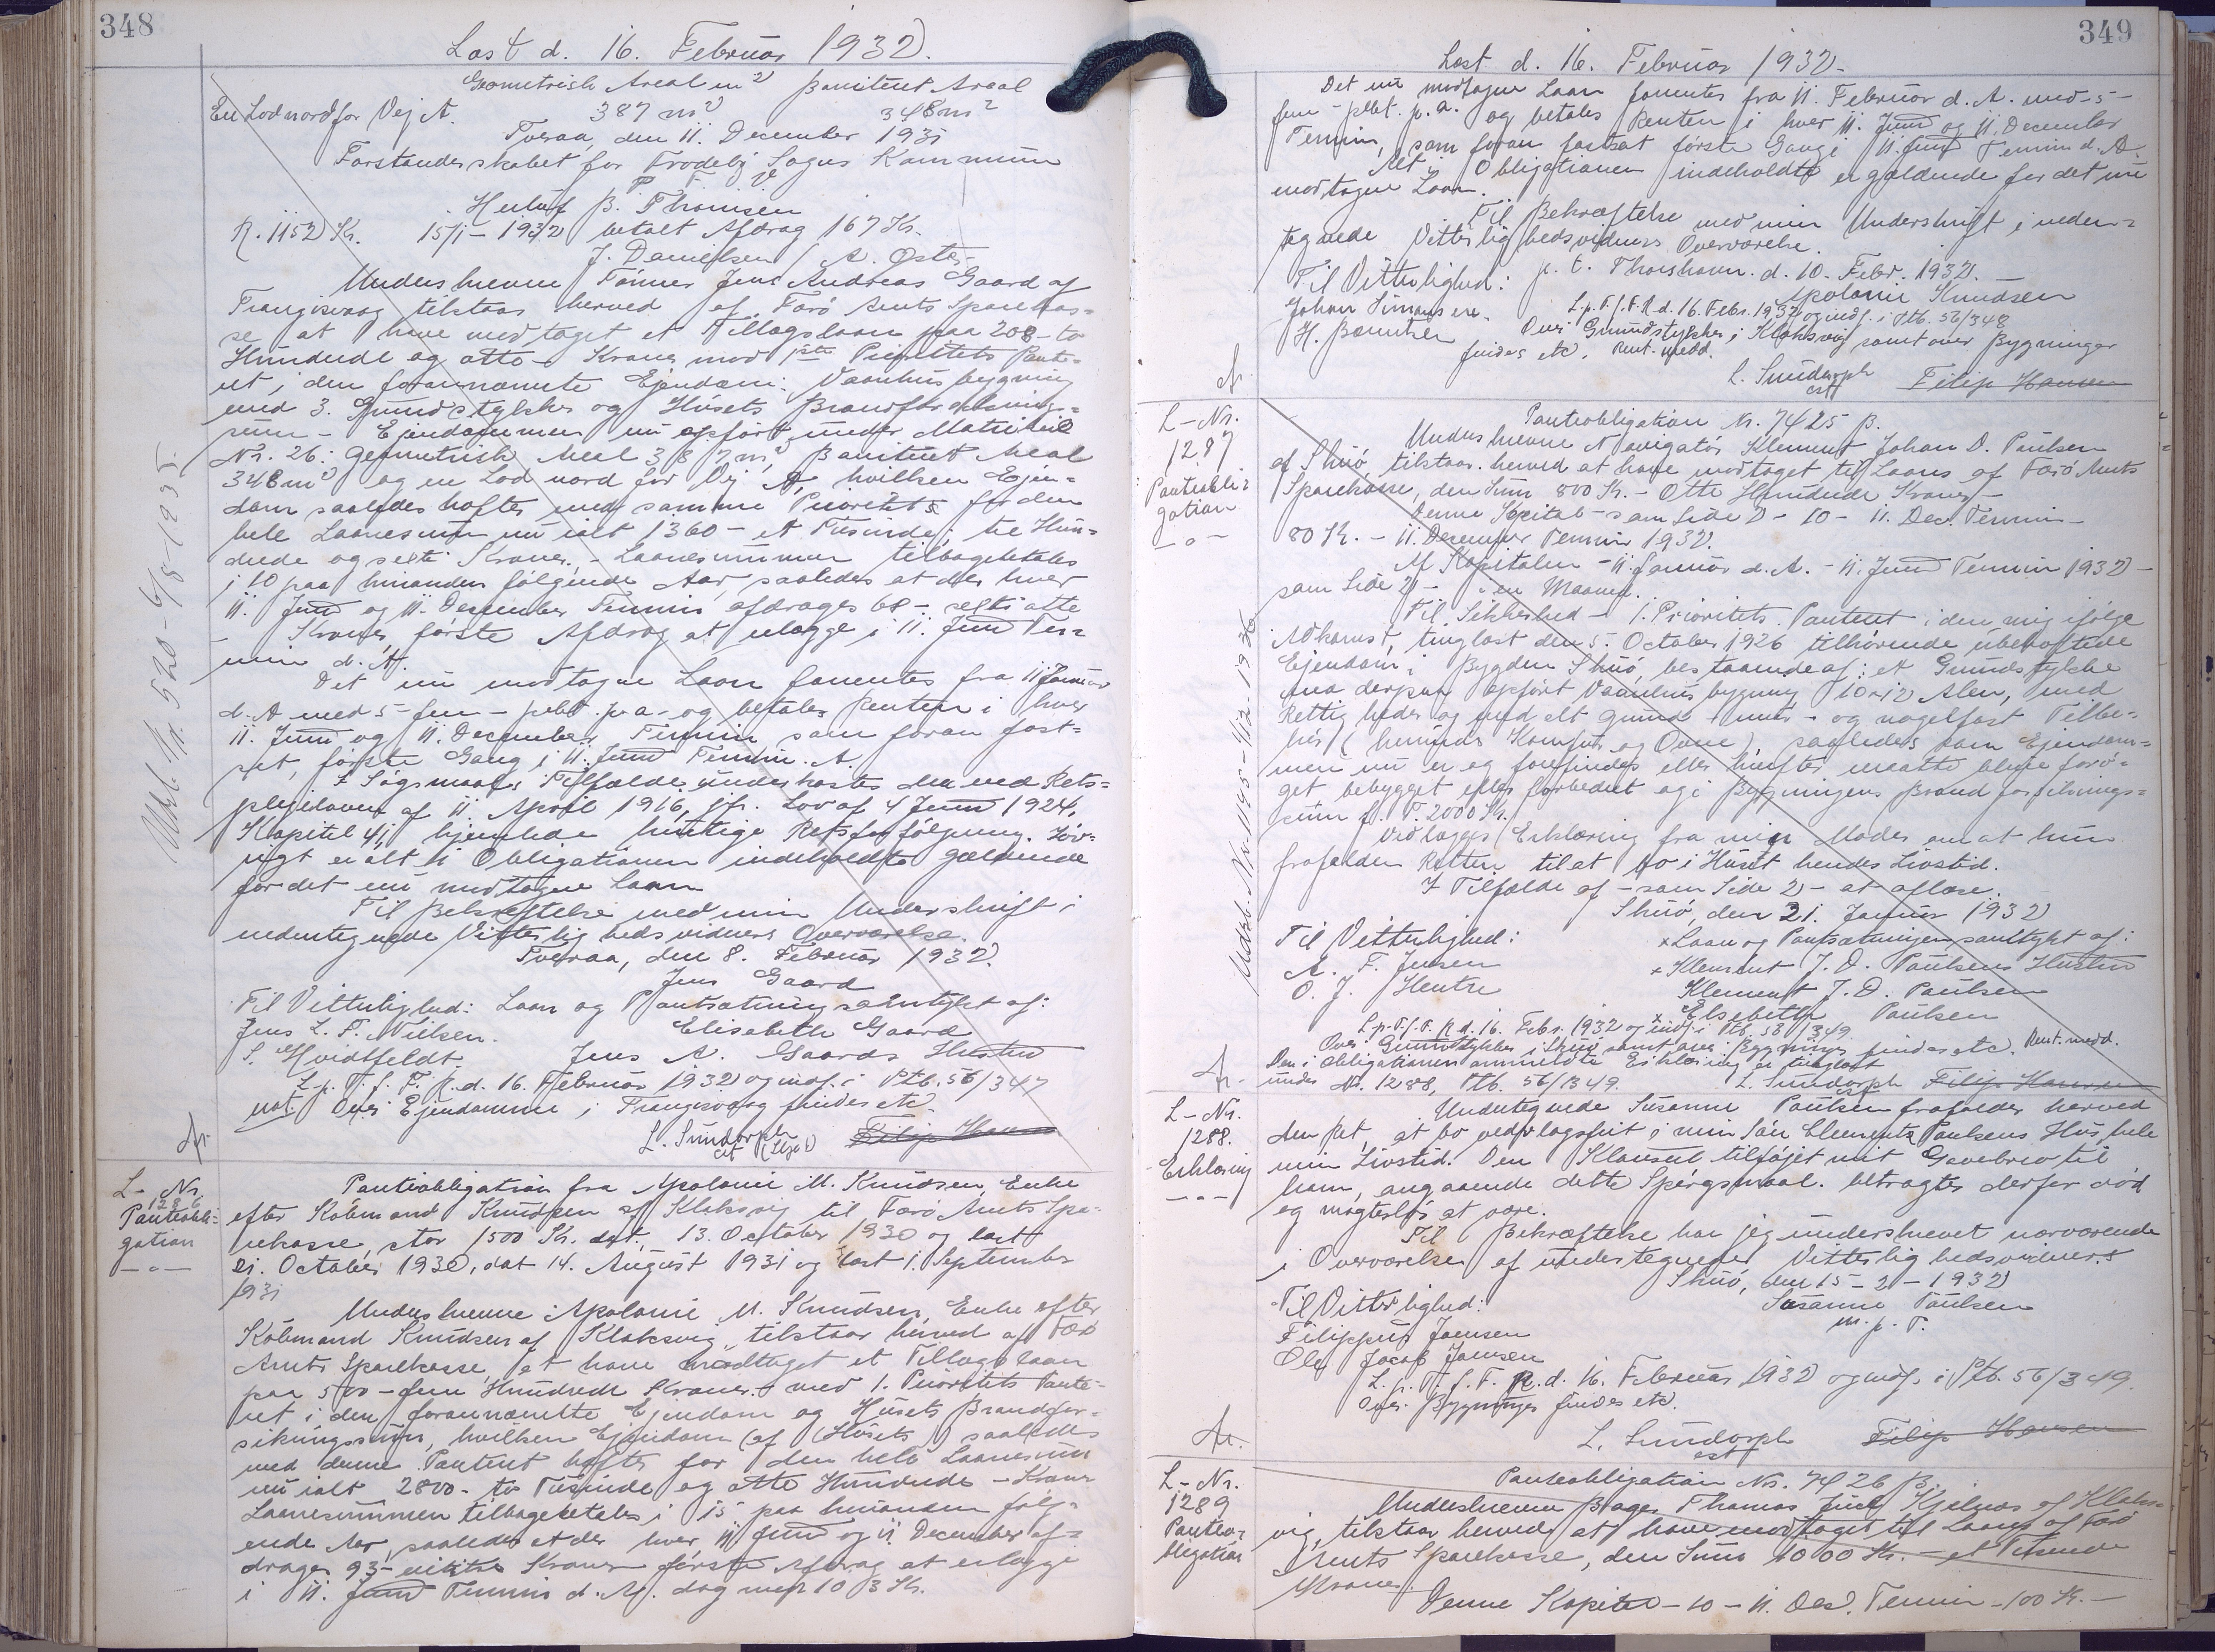 348
Læst d. 16. Februar 1932.
Geometrisk Areal m² Boniteret Areal
En Lod nord for Vej A. 387 m² 348 m²
Tveraa, den 11. December 1931
Forstanderskabet for Frodebø Sogns Kommune
P. F. V.
Herluf B. Thomsen
R. 1152 Kr. 15/1-1932 betalt Afdrag 167 Kr.
J. Danielsen / A. Øster
Underskrevne Tømrer Jens Andreas Gaard af
Trangisvaag tilstaar herved af Færø Amts Sparekas=
se at have modtaget et Tillægslaan paa 208 - to
Hundrede og otte - Kroner mod 1ste Prioritets Pante-
ret i den forannævnte Ejendom: Vaanhusbygning
med 3. Grundstykker og Husets Brandforsikrings=
sum - Ejendommen nu opført under Matrikul
Nr. 26: Geometrisk Areal 387 m², Boniteret Areal
348 m² og en Lod nord for Vej A, hvilken Ejen=
dom saaledes hæfter med samme Prioritets for den
hele Laanesum nu ialt 1360 - et Tusinde, tre Hun=
drede og seksti Kroner. - Laanesummen tilbagebetales
i 10 paa hinanden følgende Aar, saaledes at der hver
11. Juni og 11. December Termin afdrages 68 - seksti otte
- Kroner, første Afdrag at erlægge i 11. Juni Ter=
min d. A.
Det nu modtagne Laan forrentes fra 11 Januar
d. A med 5 - fem - pCbt. p.a. og betales Renten i hver
11. Juni og 11. December Termin som foran fast=
sat, første Gang i 11. Juni Termin d. A.
I Søgsmaals Tilfælde underkastes den ved Rets=
plejeloven af 11 April 1916, jfr. Lov af 4 Juni 1924,
Kapitel 41 hjemlede hurtige Retsforfølgning. Iøv=
rigt er alt i Obligationen indeholdte gældende
for det nu modtagne Laan
Til Bekræftelse med min Underskrift i
undertegnede Vitterlighedsvidners Overværelse.
Tveraa, den 8. Februar 1932.
Jens Gaard
Til Vitterlighed: Laan og Pantsætning samtykt af:
Jens L. P. Nielsen. Elisabeth Gaard
S. Hvidtfeldt. Jens A. Gaards Hustru
L. p. T. f. F. R. d. 16. Februar 1932 og indf. i Ptb. 56/347
not Over Ejendommen i Trangisvaag findes etc.
L. Sundorph
cst (Stpl.) Filip Hansen
Udsl. Nr. 520 - 6/8-1935.
Ar.
L-Nr.
1286
Panteobli=
gation
- o -
Panteobligation fra Apolonie M. Knudsen, Enke
efter Købmand Knudsen af Klaksvig til Færø Amts Spa=
rekasse, stor 1500 Kr. dat. 13. October 1930 og læst
21. October 1930, dat 14. August 1931 og læst 1. September
1931
Underskrevne Apolonie M. Knudsen, Enke efter
Købmand Knudsen af Klaksvig, tilstaar herved af Færø
Amts Sparekasse, at have modtaget et Tillægslaan
paa 500 - fem Hundrede Kroner - mod 1. Prioritets Pante=
ret i den forannævnte Ejendom og Husets Brandfor=
sikringssum, hvilken Ejendom (af Husets) saaledes
med denne Panteret hæfter for den hele Laanesum
nu ialt 2800 - to Tusinde og otte Hundrede - Kroner
Laanesummen tilbagebetales i 15 paa hinanden følg=
ende Aar, saaledes at der hver 11 Juni og 11. December af=
drages 93 - Kroner første Afdrag at erlægge
i 11. Juni Termin d. A. dog med 103 Kr.
349
Læst d. 16. Februar 1932.
Det nu modtagne Laan forrentes fra 11. Februar d. A. med - 5 -
fem - pCbt. p.a. og betales Renten i hver 11. Juni og 11. December
Termin, som foran fastsat første Gang i 11. Juni Termin d. A.
Alt i Obligationen indeholdte er gældende for det nu
modtagne Laan.
Til Bekræftelse med min Underskrift i neden=
tegnede Vitterlighedsvidners Overværelse.
p. t. Thorshavn. d. 10. Febr. 1932.
Til Vitterlighed: Apolonie Knudsen
Johan Simonsen. L. p. T. f. F. R. d. 16. Febr. 1932 og indf. i Ptb. 56/348
H. Boutrer Over Grundstykker i Klaksvig samt over Bygninger
findes etc. Rent. medd.
L. Sundorph
cst Filip Hansen
Ar.
L-Nr.
1287
Panteobli=
gation
- o -
Panteobligation Nr. 7425 B.
Underskrevne Navigatør Klement Johan D. Poulsen
af Skuø, tilstaar herved at have modtaget til Laans af Færø Amts
Sparekasse, den Sum 800 Kr. - Otte Hundrede Kroner -
Denne Kapital - som Side 2 - 10 - 11. Dec. Termin -
80 Kr. - 11. December Termin 1932.
Af Kapitalen - 11. Januar d. A. - 11. Juni Termin 1932 -
som Side 2 - i en Maaned.
Til Sikkerhed - 1. Prioritets Panteret i den mig ifølge
Adkomst, tinglæst den 5. October 1926 tilhørende ubehæftede
Ejendom i Bygden Skuø, bestaaende af: et Grundstykke
med derpaa opført Vaanhusbygning 10 x 12 Alen, med
Rettigheder og med alt grund - mur - og nagelfast Tilbe=
hør (herunder Komfur og Ovne), saaledes som Ejendom=
men nu er og forefindes eller herefter maatte blive forø=
get bebygget eller forbedret og i Bygningens Brandforsikrings=
sum p. T. 2000 Kr.
Vedlægges Erklæring fra min Moder om at hun
frafalder Retten til at bo i Huset hendes Livstid.
I Tilfælde af - som Side 2 - at aflæse.
Skuø, den 21. Januar 1932
Til Vitterlighed: x Laan og Pantsætningen samtykt af:
A. F. Jensen x Klement J. D. Poulsens Hustru
O. J. Hentze Klement J. D. Poulsen
x Elsebeth Poulsen
L. p. T. f. F. R. d. 16. Febr. 1932 og indf. i Ptb. 56/349
Over Grundstykker i Skuø samt over Bygninger findes etc. Rent. medd.
Den i Obligationen anmeldte Erklæring er tinglæst
under Nr. 1288, Ptb. 56/349. L. Sundorph Filip Hansen
cst
Udsl. Nr. 1195 - 1/12-1936
Ar.
L-Nr.
1288.
Erklæring
- o -
Undertegnede Susanne Poulsen frafalder herved
den Ret, at bo vederlagsfrit i min Søn Clements Poulsens Hus hele
min Livstid. Den Klausul tilføjet mit Gavebrev til
ham, angaaende dette Spørgsmaal. betragtes derfor død
og magtesløs at være.
Til Bekræftelse har jeg underskrevet nærværende
i Overværelse af undertegnede Vitterlighedsvidners
Skuø, den 15 - 2 - 1932
Til Vitterlighed: Susanne Poulsen
Filippus Joensen m. p. P.
Ole Jacob Joensen
L. p. T. f. F. R. d. 16. Februar 1932 og indf. i Ptb. 56/349.
Over Bygninger findes etc.
L. Sundorph Filip Hansen
cst
Ar.
L-Nr.
1289
Panteo=
bligation
Panteobligation Nr. 7426 B.
Underskrevne Bager Thomas Juul Kjølnæs af Klaks=
vig, tilstaar herved at have modtaget til Laans af Færø
Amts Sparekasse, den Sum 1000 Kr. - et Tusinde
Kroner.
Denne Kapital - 10 - 11. Dec. Termin - 100 Kr. -